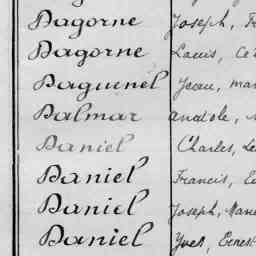 Dagorne Joseph, Fr
Dagorne Louis, Cé
Daguenel Jean, Mar
Dalmar Anatole,
Daniel Charles, Le
Daniel Francis, E
Daniel Joseph, Marie
Daniel Yves, Ernest